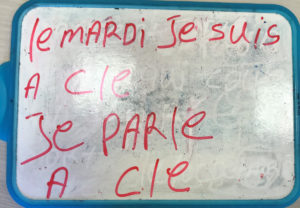 le mARDi Je suis
A Cle
Je PARle
A Cle